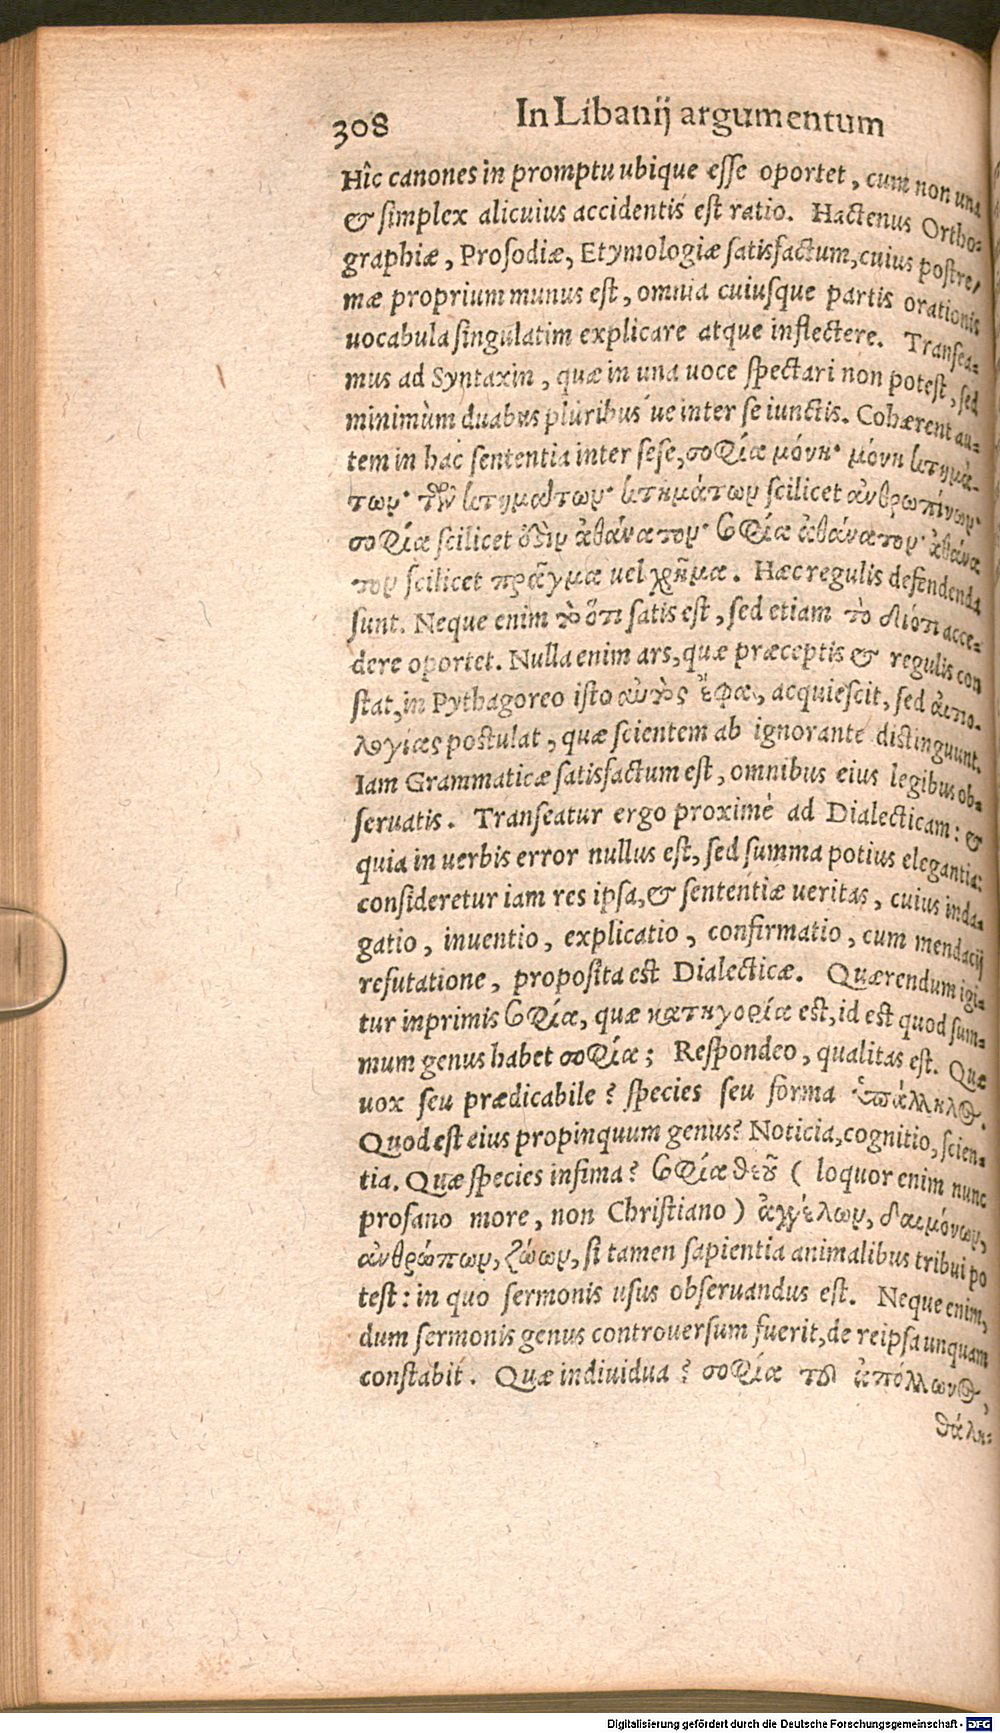 308 In Libanij argumentum
Hîc canones in promptu ubique esse oportet, cum non una
& simplex alicuius accidentis est ratio. Hactenus Ortho-
graphiæ, Prosodiæ, Etymologiæ satisfactum, cuius postre-
mæ proprium munus est, omnia cuiusque partis orationis
uocabula singulatim explicare atque inflectere. Transea-
mus ad Syntaxin, quæ in una uoce spectari non potest, sed
minimùm duabus pluribus ue inter se iunctis. Cohærent au-
tem in hac sententia inter sese, σοφία μόνη· μόνη κτημά-
των· τῶν κτημάτων· κτημάτων scilicet ἀνθρωπίνων·
σοφία scilicet ὅτι ἀθάνατον· σοφία ἀθάνατον· ἀθάνα
τον scilicet πρᾶγμα uel χρῆμα. Hæc regulis defendenda
sunt. Neque enim τὸ ὅτι satis est, sed etiam τὸ διότι acce-
dere oportet. Nulla enim ars, quæ præceptis & regulis con
stat, in Pythagoreo isto αὐτὸς ἔφα, acquiescit, sed αἰτιο-
λογίας postulat, quæ scientem ab ignorante distinguunt.
Iam Grammaticæ satisfactum est, omnibus eius legibus ob-
seruatis. Transeatur ergo proximè ad Dialecticam: &
quia in uerbis error nullus est, sed summa potius elegantia:
consideretur iam res ipsa, & sententiæ ueritas, cuius inda-
gatio, inuentio, explicatio, confirmatio, cum mendacij
refutatione, proposita est Dialecticæ. Quærendum igi-
tur inprimis σοφία, quæ κατηγορία est, id est quod sum-
mum genus habet σοφία; Respondeo, qualitas est. Quæ
uox seu prædicabile? species seu forma ὑπάλληλος.
Quod est eius propinquum genus? Noticia, cognitio, scien-
tia. Quæ species infima? σοφία θεοῦ ( loquor enim nunc
profano more, non Christiano) ἀγγέλων, δαιμόνων,
ἀνθρώπων, ζώων, si tamen sapientia animalibus tribui po
test: in quo sermonis usus obseruandus est. Neque enim,
dum sermonis genus controuersum fuerit, de reipsa unquam
constabit. Quæ indiuidua? σοφία τοῦ ἀπόλλωνος,
θάλη-
Digitalisierung gefördert durch die Deutsche Forschungsgemeinschaft - DFG